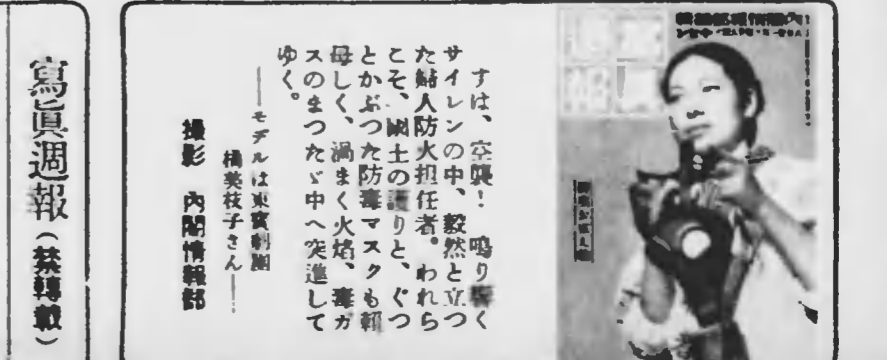 すは、空襲！鳴り響く
サイレンの中、毅然と立つ
た婦人防火担任者。われら
こそ、國土の護りと、ぐつ
とかぶつた防毒マスクも頼
母しく、渦まく火焰、毒ガ
スのまつたゞ中へ突進して
ゆく。
――モデルは東寶劇團
橘英枝子さん――
撮影　內閣情報部
寫眞週報（禁轉載）